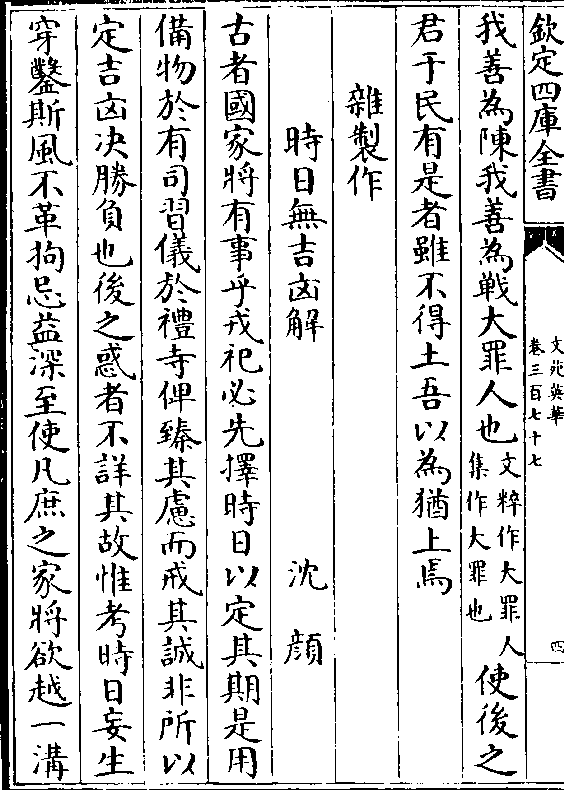 欽定四庫全書
文苑英華
卷三百七十七
四
我善為陳我善為戰大罪人也文粹作大罪人集作大罪也使後之
君于民有是者雖不得土吾以為猶上焉
雜製作
時日無吉凶解 沈顔
古者國家將有事乎戎祀必先擇時日以定其期是用
備物於有司習儀於禮寺俾臻其慮而戒其誠非所以
定吉凶决勝負也後之惑者不詳其故惟考時日妄生
穿鑿斯風不革拘忌益深至使凡庶之家將欲越一溝